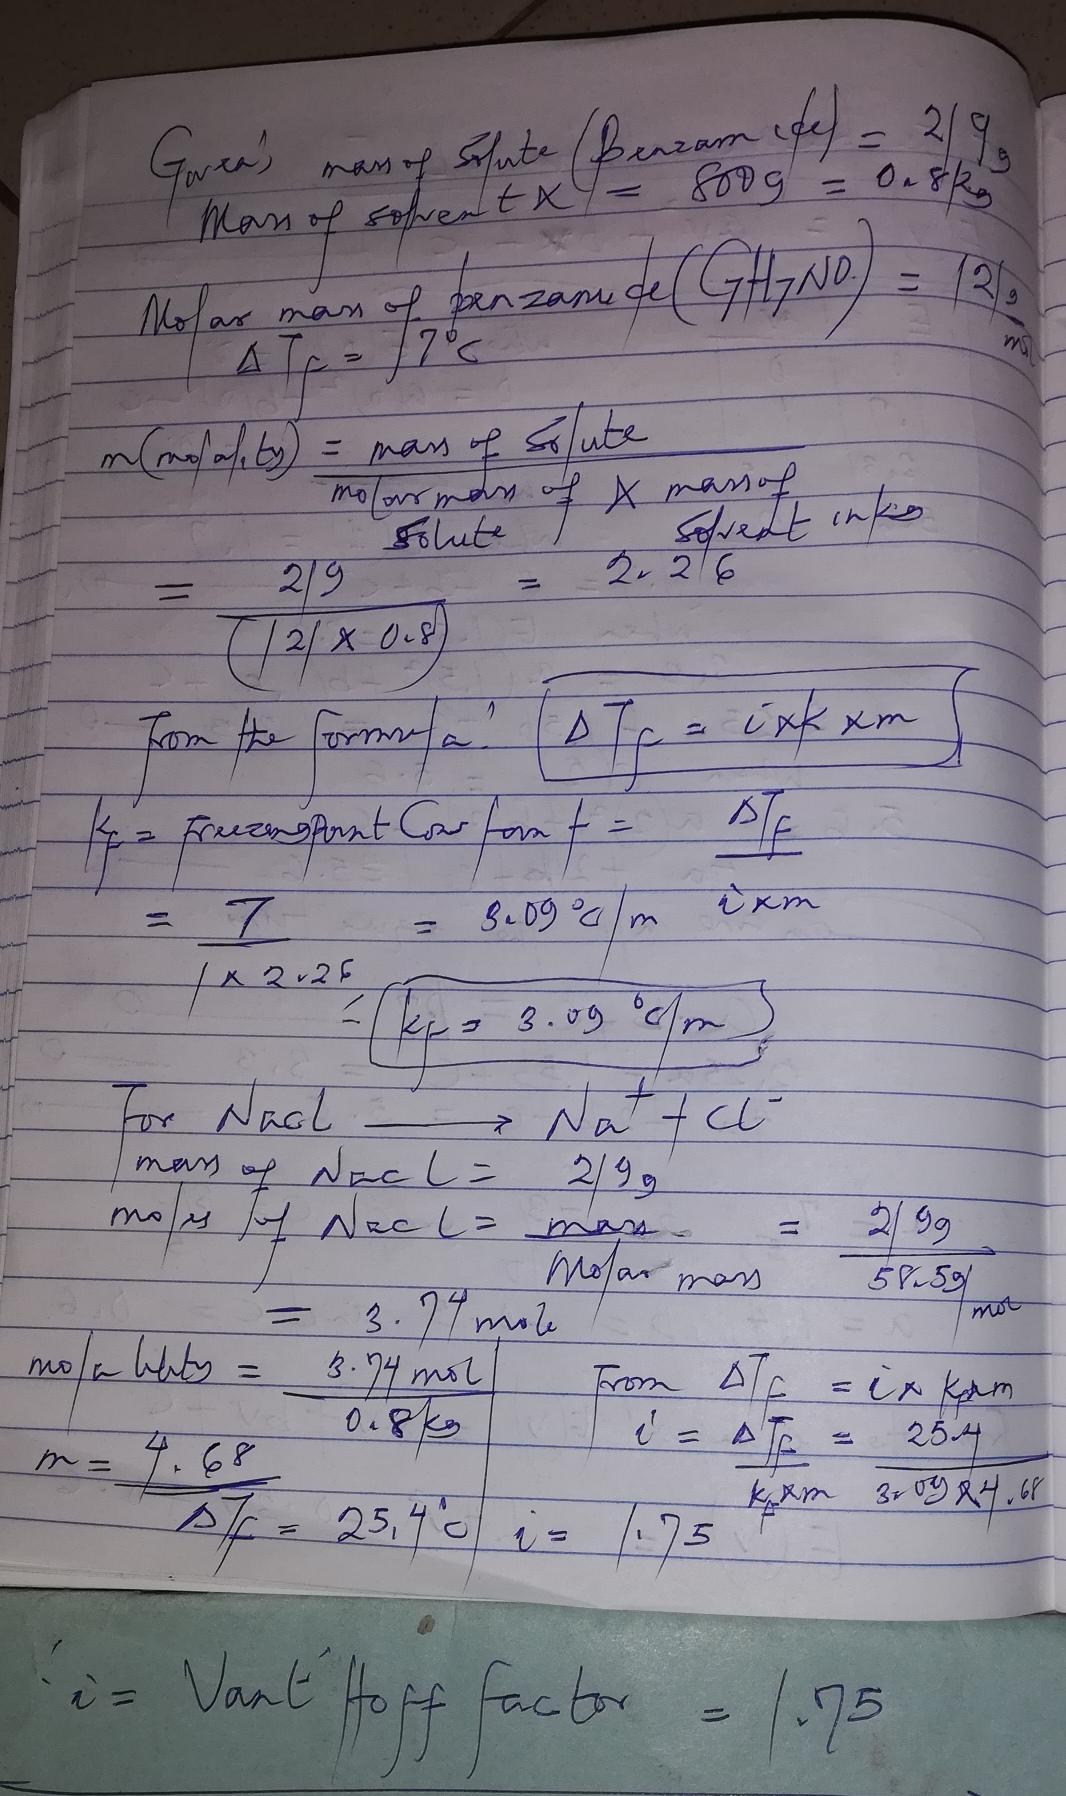 Given: mass of solute (Benzamide) = 219g
Mass of solvent X = 800g = 0.8kg
Molar mass of benzamide (C7H7NO) = 121g/mol
ΔTf = 7°C
m(molality) = mass of solute
molar mass of solute X mass of solvent in kg
= 219 / (121 x 0.8) = 2.26
From the formula: ΔTf = i x k x m
kf = Freezing point Constant = ΔTf / i x m
= 7 / 1 x 2.26 = 3.09°C/m
= kf = 3.09 °C/m
For NaCl → Na+ + Cl-
mass of NaCl = 219g
moles of NaCl = mass / Molar mass = 219g / 58.5g/mol
= 3.74 mole
molality = 3.74 mol / 0.8kg
m = 4.68
ΔTf = 25.4°C
From ΔTf = i x kf x m
i = ΔTf / kf x m = 25.4 / 3.09 x 4.68
i = 1.75
i = Vant' Hoff factor = 1.75